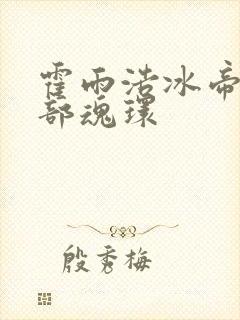 霍雨浩冰帝
部魂环
殷秀梅